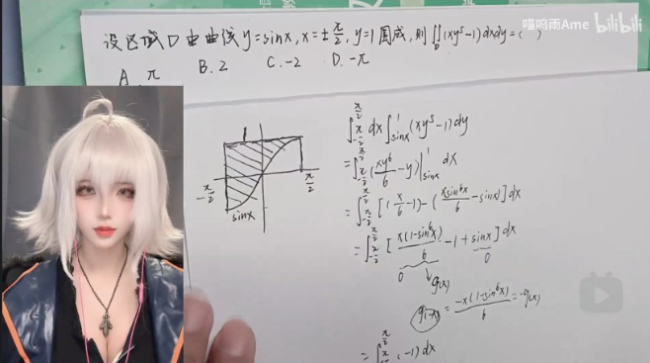 喵呜雨Ame bilibili
设区域D由曲线y=sinx,x=±π/2,y=1围成,则∬_D(xy⁵-1)dxdy=( )
A. π B. 2 C. -2 D. -π
1
-π/2 π/2
sinx
∫_{-π/2}^{π/2} dx∫_{sinx}^{1}(xy⁵-1)dy
=∫_{-π/2}^{π/2}(xy⁶/6-y)|_{sinx}^{1} dx
=∫_{-π/2}^{π/2}[(x/6-1)-(xsin⁶x/6-sinx)]dx
=∫_{-π/2}^{π/2}[x(1-sin⁶x)/6-1+sinx]dx
0 g(x) 0
g(-x)=-x(1-sin⁶x)/6=-g(x)
=∫_{-π/2}^{π/2}(-1)dx